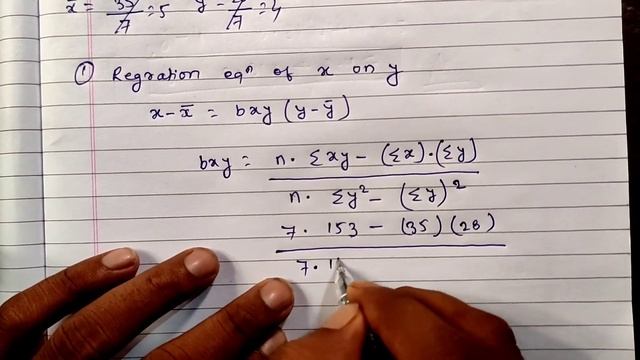 x̄ = 35/7 = 5 ȳ = /7 = 4
① Regration eqⁿ of x on y
x - x̄ = bxy (y - ȳ)
bxy = n · Σxy - (Σx)·(Σy)
n · Σy² - (Σy)²
7 · 153 - (35)(28)
7 · 1